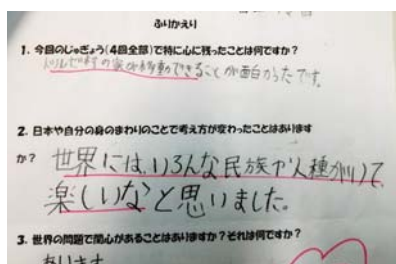 ふりかえり
1. 今回のじゅぎょう(4回全部)で特に心に残ったことは何ですか?
の家が移動できることが面白かったです。
2. 日本や自分の身のまわりのことで考え方が変わったことはあります
か? 世界には、いろんな民族や人種がいて、
楽しいなと思いました。
3. 世界の問題で関心があることはありますか?それは何ですか?
あります